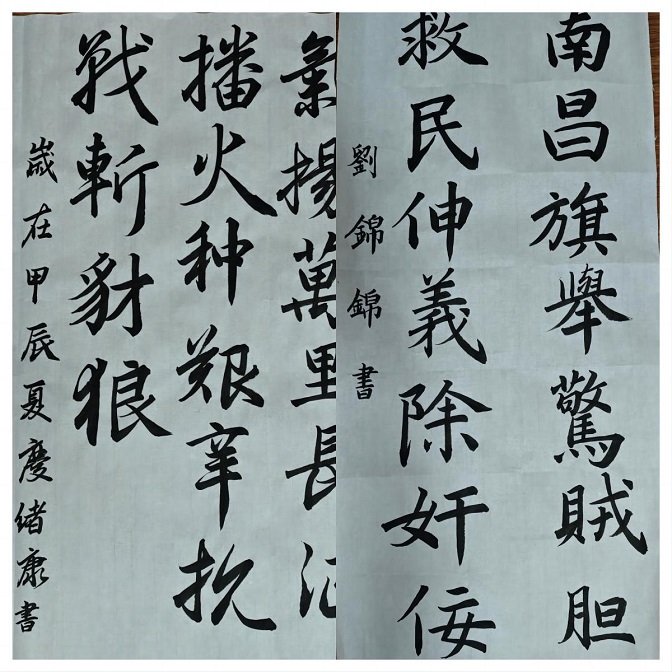 南昌旗舉驚賊胆
救民伸義除奸佞
劉錦錦書
氣揚萬里長
播火种艱辛抗
戰斬豺狼
歲在甲辰夏慶緒康書